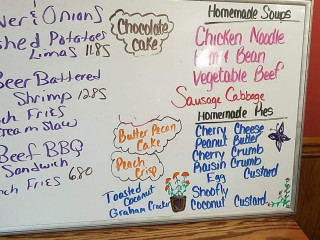 ver & Onions
shed Potatoes
Limas 11.85
Beer Battered
Shrimp 12.85
ch Fries
ream Slaw
Beef BBQ
Sandwich
ch Fries 6.80
Chocolate
Cake
Butter Pecan
Cake
Peach
Crisp
Toasted
Coconut
Graham Cracker
Homemade Soups
Chicken Noodle
Ham & Bean
Vegetable Beef
Sausage Cabbage
Homemade Pies
Cherry Cheese
Peanut Butter
Cherry Crumb
Raisin Crumb
Egg Custard
Shoofly
Coconut Custard